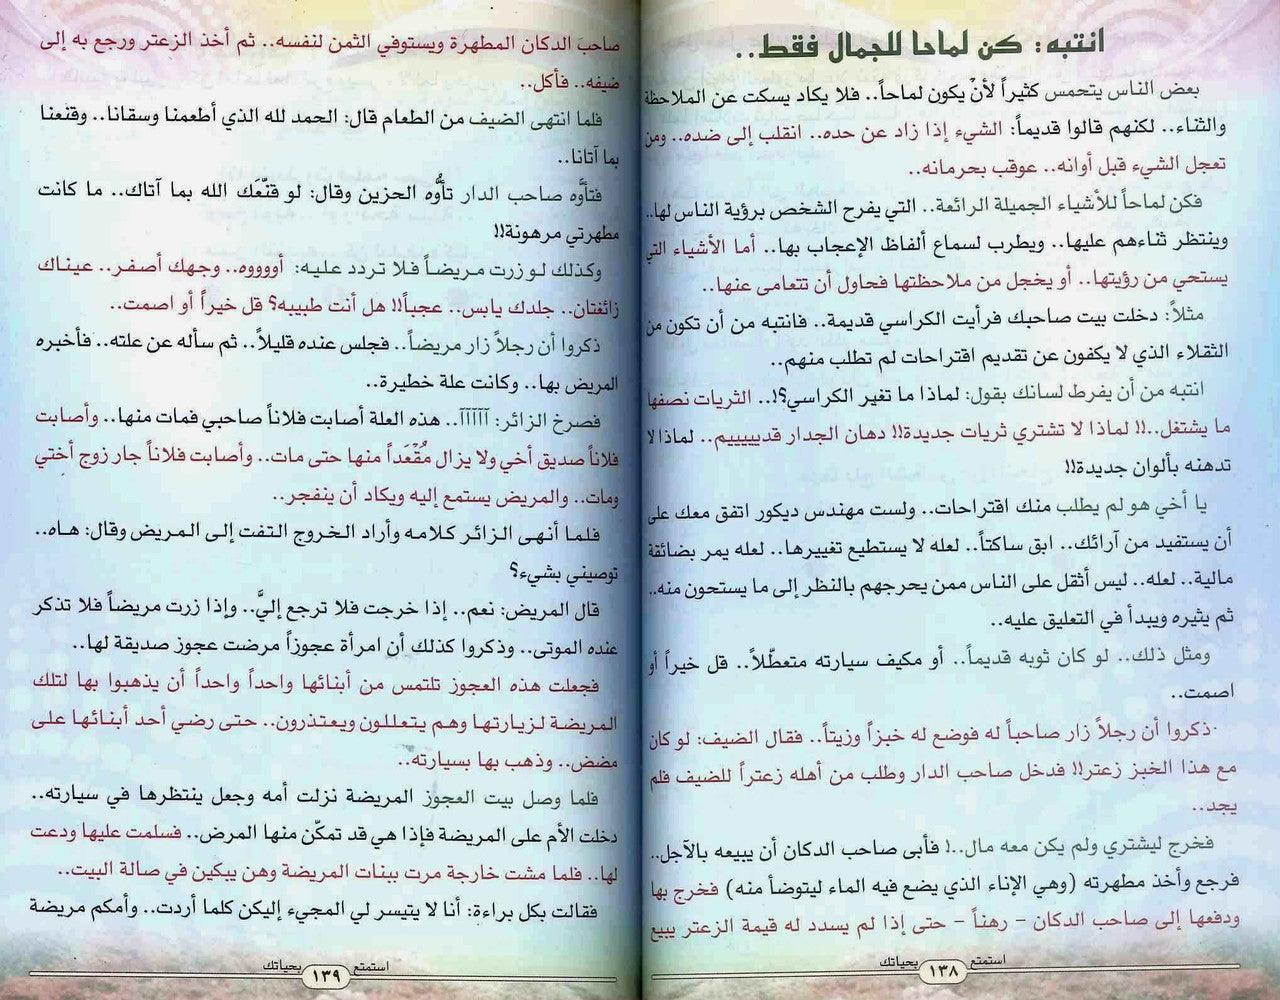 انتبه: كن لماحا للجمال فقط..
بعض الناس يتحمس كثيراً لأنْ يكون لماحاً.. فلا يكاد يسكت عن الملاحظة
والثناء.. لكنهم قالوا قديماً: الشيء إذا زاد عن حده.. انقلب إلى ضده.. ومن
تعجل الشيء قبل أوانه.. عوقب بحرمانه..
فكن لماحاً للأشياء الجميلة الرائعة.. التي يفرح الشخص برؤية الناس لها..
وينتظر ثناءهم عليها.. ويطرب لسماع ألفاظ الإعجاب بها.. أما الأشياء التي
يستحي من رؤيتها.. أو يخجل من ملاحظتها فحاول أن تتعامى عنها..
مثلاً: دخلت بيت صاحبك فرأيت الكراسي قديمة.. فانتبه من أن تكون من
الثقلاء الذي لا يكفون عن تقديم اقتراحات لم تطلب منهم..
انتبه من أن يفرط لسانك بقول: لماذا ما تغير الكراسي؟!.. الثريات نصفها
ما يشتغل..!! لماذا لا تشتري ثريات جديدة!! دهان الجدار قديييييم.. لماذا لا
تدهنه بألوان جديدة!!
يا أخي هو لم يطلب منك اقتراحات.. ولست مهندس ديكور اتفق معك على
أن يستفيد من آرائك.. ابق ساكتاً.. لعله لا يستطيع تغييرها.. لعله يمر بضائقة
مالية.. لعله.. ليس أثقل على الناس ممن يحرجهم بالنظر إلى ما يستحون منه..
ثم يثيره ويبدأ في التعليق عليه..
ومثل ذلك.. لو كان ثوبه قديماً.. أو مكيف سيارته متعطّلاً.. قل خيراً أو
اصمت..
ذكروا أن رجلاً زار صاحباً له فوضع له خبزاً وزيتاً.. فقال الضيف: لو كان
مع هذا الخبز زعتر!! فدخل صاحب الدار وطلب من أهله زعتراً للضيف فلم
يجد..
فخرج ليشتري ولم يكن معه مال..! فأبى صاحب الدكان أن يبيعه بالآجل..
فرجع وأخذ مطهرته (وهي الإناء الذي يضع فيه الماء ليتوضأ منه) فخرج بها
ودفعها إلى صاحب الدكان – رهناً – حتى إذا لم يسدد له قيمة الزعتر يبيع
استمتع ١٣٨ بحياتك
صاحبَ الدكان المطهرة ويستوفي الثمن لنفسه.. ثم أخذ الزعتر ورجع به إلى
ضيفه.. فأكل..
فلما انتهى الضيف من الطعام قال: الحمد لله الذي أطعمنا وسقانا.. وقنعنا
بما آتانا..
فتأوَّه صاحب الدار تأوُّه الحزين وقال: لو قنّعَك الله بما آتاك.. ما كانت
مطهرتي مرهونة!!
وكذلك لو زرت مريضاً فلا تردد عليه: أووووه.. وجهك أصفر.. عيناك
زائغتان.. جلدك يابس.. عجباً!! هل أنت طبيبه؟ قل خيراً أو اصمت..
ذكروا أن رجلاً زار مريضاً.. فجلس عنده قليلاً.. ثم سأله عن علته.. فأخبره
المريض بها.. وكانت علة خطيرة..
فصرخ الزائر: آآآآآ.. هذه العلة أصابت فلاناً صاحبي فمات منها.. وأصابت
فلاناً صديق أخي ولا يزال مُقْعَداً منها حتى مات.. وأصابت فلاناً جار زوج أختي
ومات.. والمريض يستمع إليه ويكاد أن ينفجر..
فلما أنهى الزائر كلامه وأراد الخروج التفت إلى المريض وقال: هاه..
توصيني بشيء؟
قال المريض: نعم.. إذا خرجت فلا ترجع إليَّ.. وإذا زرت مريضاً فلا تذكر
عنده الموتى.. وذكروا كذلك أن امرأة عجوزاً مرضت عجوز صديقة لها..
فجعلت هذه العجوز تلتمس من أبنائها واحداً واحداً أن يذهبوا بها لتلك
المريضة لزيارتها وهم يتعللون ويعتذرون.. حتى رضي أحد أبنائها على
مضض.. وذهب بها بسيارته..
فلما وصل بيت العجوز المريضة نزلت أمه وجعل ينتظرها في سيارته..
دخلت الأم على المريضة فإذا هي قد تمكّن منها المرض.. فسلمت عليها ودعت
لها.. فلما مشت خارجة مرت ببنات المريضة وهن يبكين في صالة البيت..
فقالت بكل براءة: أنا لا يتيسر لي المجيء إليكن كلما أردت.. وأمكم مريضة
استمتع ١٣٩ بحياتك